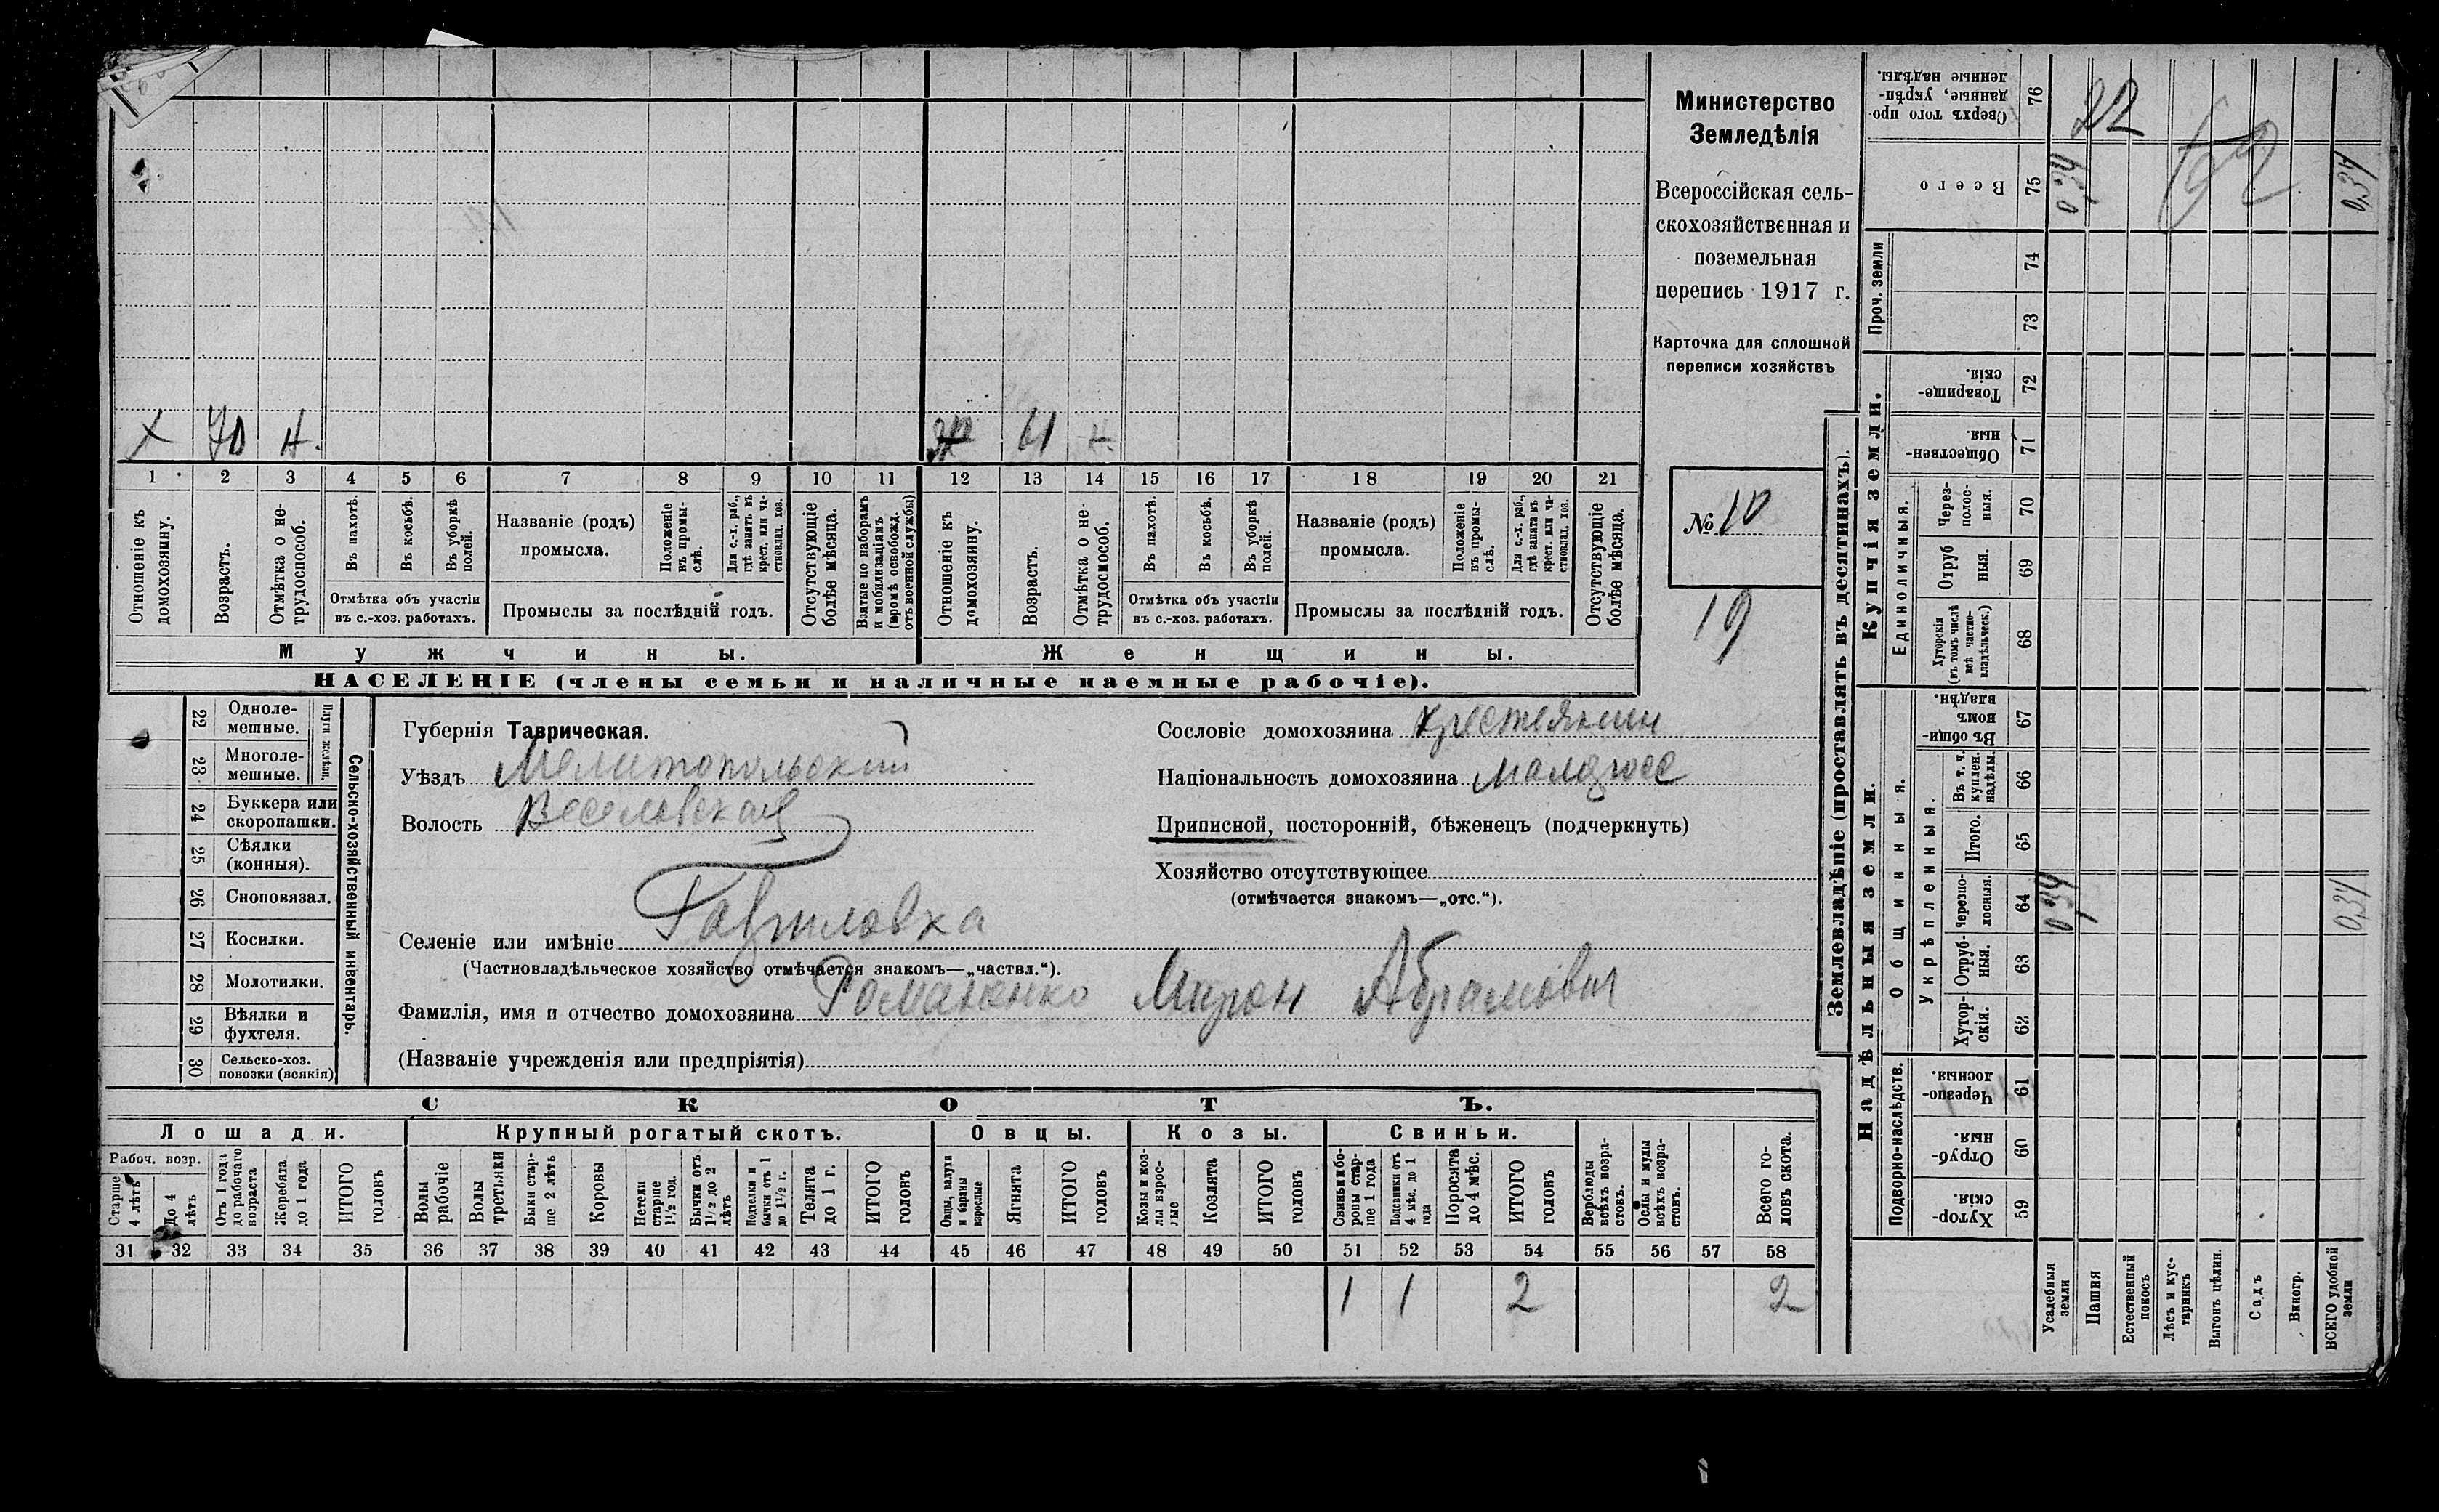 Министерство
Земледѣлія
Всероссійская сель-
скохозяйственная и
поземельная
перепись 1917 г.
Карточка для сплошной
переписи хозяйствъ
№ 10
19
Х 70 н. 61 н.
1 2 3 4 5 6 7 8 9 10 11 12 13 14 15 16 17 18 19 20 21
Отношеніе къ домохозяину.
Возрастъ.
Отмѣтка о не-трудоспособ.
Въ пахотѣ.
Въ косьбѣ.
Въ уборкѣ полей.
Отмѣтка объ участіи
въ с.-хоз. работахъ.
Названіе (родъ)
промысла.
Положеніе въ промы-слѣ.
Для с.-х. раб., гдѣ занятъ въ крест. или ча-стновлад. хоз.
Промыслы за послѣдній годъ.
Отсутствующіе болѣе мѣсяца.
Взятые по наборамъ и мобилизаціямъ (кромѣ освобожд. отъ военной службы)
Отношеніе къ домохозяину.
Возрастъ.
Отмѣтка о не-трудоспособ.
Въ пахотѣ.
Въ косьбѣ.
Въ уборкѣ полей.
Отмѣтка объ участіи
въ с.-хоз. работахъ.
Названіе (родъ)
промысла.
Положеніе въ промы-слѣ.
Для с.-х. раб., гдѣ занята въ крест. или ча-стновлад. хоз.
Промыслы за послѣдній годъ.
Отсутствующіе болѣе мѣсяца.
Мужчины.
Женщины.
НАСЕЛЕНІЕ (члены семьи и наличные наемные рабочіе).
22 Одноле-мешные.
23 Многоле-мешные.
Плуги желѣзн.
24 Буккера или скоропашки.
25 Сѣялки (конныя).
26 Сноповязал.
27 Косилки.
28 Молотилки.
29 Вѣялки и фухтеля.
30 Сельско-хоз. повозки (всякія)
Сельско-хозяйственный инвентарь.
Губернія Таврическая.
Уѣздъ Мелитопольский
Волость Веселовская
Селеніе или имѣніе Гавриловка
(Частновладѣльческое хозяйство отмѣчается знакомъ—„частвл.“).
Фамилія, имя и отчество домохозяина Романенко Мирон Абрамович
(Названіе учрежденія или предпріятія)
Сословіе домохозяина крестьянин
Національность домохозяина малоросс
Приписной, посторонній, бѣженецъ (подчеркнуть)
Хозяйство отсутствующее
(отмѣчается знакомъ—„отс.“).
СКОТЪ.
Лошади. Крупный рогатый скотъ. Овцы. Козы. Свиньи.
Рабоч. возр.
Старше 4 лѣтъ
До 4 лѣтъ
Отъ 1 года до рабочаго возраста
Жеребята до 1 года
ИТОГО головъ
Волы рабочіе
Волы третьяки
Быки стар-ше 2 лѣтъ
Коровы
Нетели старше 1½ год.
Бычки отъ 1½ до 2 лѣтъ
Подтелки и бычки отъ 1 до 1½ г.
Телята до 1 г.
ИТОГО головъ
Овцы, валухи и бараны взрослые
Ягнята
ИТОГО головъ
Козы и коз-лы взрос-лые
Козлята
ИТОГО головъ
Свиньи и бо-ровы стар-ше 1 года
Подсвинки отъ 4 мѣс. до 1 года
Поросята до 4 мѣс.
ИТОГО головъ
Верблюды всѣхъ возра-стовъ.
Ослы и мулы всѣхъ возра-стовъ.
Всего го-ловъ скота.
31 32 33 34 35 36 37 38 39 40 41 42 43 44 45 46 47 48 49 50 51 52 53 54 55 56 57 58
1 1 2 2
Землевладѣніе (проставлять въ десятинахъ).
Надѣльныя земли.
Купчія земли.
Проч. земли
Подворно-наслѣдств.
Общинныя.
Укрѣпленныя.
Единоличныя.
Хутор-скія. 59
Отруб-ныя. 60
Черезпо-лосныя. 61
Хутор-скія. 62
Отруб-ныя. 63
Черезпо-лосныя. 64
Итого. 65
Въ т. ч. куплен. надѣлы. 66
Въ общи-номъ владѣн. 67
Хуторскія (въ томъ числѣ всѣ частно-владѣльческ.) 68
Отруб ныя. 69
Через-полос-ныя. 70
Обществен-ныя. 71
Товарище-скія. 72
73
74
Всего 75
Сверхъ того про-данные, укрѣп-ленные надѣлы. 76
Усадебныя земли
Пашня
Естественный покосъ
Лѣсъ и кус-тарникъ
Выгонъ цѣлин.
Садъ
Виногр.
ВСЕГО удобной земли
0,34
0,34
0,34
0,34
22